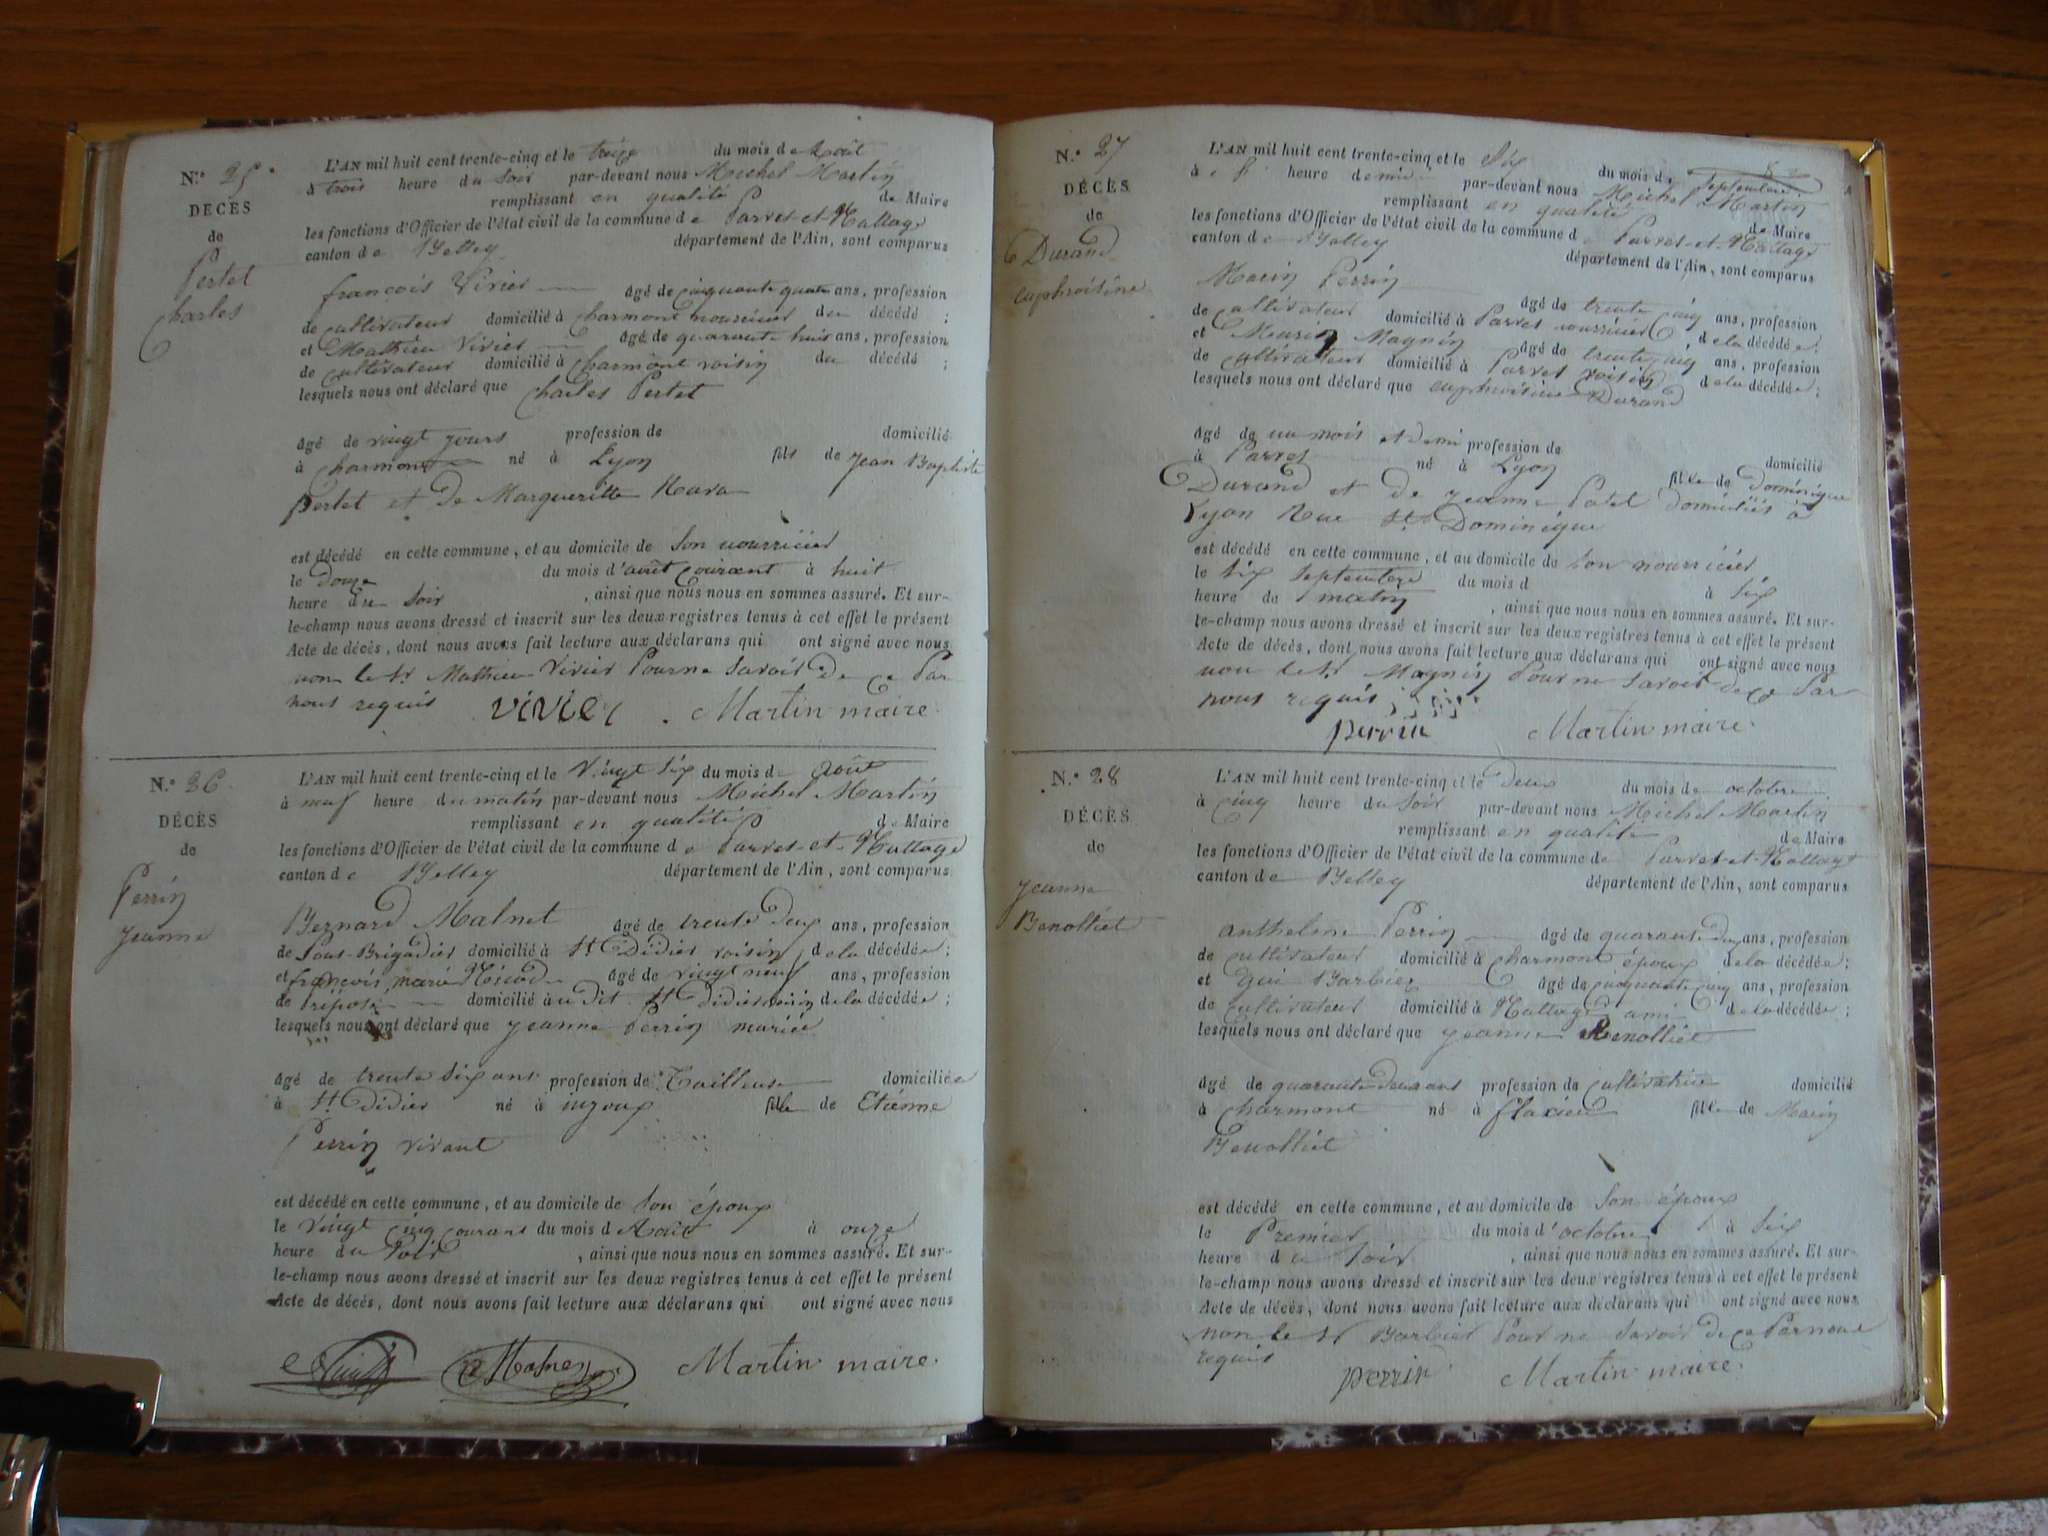 N.º 25
DÉCÈS
de
Pertet
Charles
L'AN mil huit cent trente-cinq et le treize du mois d Août
à trois heure du Soir par-devant nous Michel Martin
remplissant en qualité de Maire
les fonctions d'Officier de l'état civil de la commune de Parves-et-Nattage
canton de Belley département de l'Ain, sont comparus
françois Vivier âgé de cinquante quatre ans, profession
de cultivateur domicilié à Charmont nourricier du décédé ;
et Mathieu Vivier âgé de quarante huit ans, profession
de cultivateur domicilié à Charmont voisin du décédé ;
lesquels nous ont déclaré que Charles Pertet
âgé de vingt jours profession de domicilié
à Charmont né à Lyon fils de Jean Baptiste
Pertet et de Margueritte
est décédé en cette commune, et au domicile de Son nourricier
le douze du mois d'août courant à huit
heure du Soir , ainsi que nous nous en sommes assuré. Et sur-
le-champ nous avons dressé et inscrit sur les deux registres tenus à cet effet le présent
Acte de décès, dont nous avons fait lecture aux déclarans qui ont signé avec nous
non le Sr Mathieu Vivier Pour ne Savoir de ce Par
nous requis vivier Martin maire
N.º 26
DÉCÈS
de
Perrin
Jeanne
L'AN mil huit cent trente-cinq et le Vingt Six du mois d Août
à neuf heure du matin par-devant nous Michel Martin
remplissant en qualité de Maire
les fonctions d'Officier de l'état civil de la commune de Parves-et-Nattage
canton de Belley département de l'Ain, sont comparus
Bernard Malnet âgé de trente deux ans, profession
de Sous-Brigadier domicilié à St Didier voisin de la décédée ;
et françois marie âgé de vingt neuf ans, profession
de préposé domicilié à udit St Didier voisin de la décédée ;
lesquels nous ont déclaré que Jeanne Perrin mariée
âgé de trente Six ans profession de Tailleuse domiciliée
à St Didier né à fille de Etienne
Perrin vivant
est décédé en cette commune, et au domicile de Son époux
le vingt cinq courant du mois d Août à onze
heure du Soir , ainsi que nous nous en sommes assuré. Et sur-
le-champ nous avons dressé et inscrit sur les deux registres tenus à cet effet le présent
Acte de décès, dont nous avons fait lecture aux déclarans qui ont signé avec nous
Martin maire.
N.º 27
DÉCÈS
de
Durand
euphroisine
L'AN mil huit cent trente-cinq et le Six du mois de Septembre
à heure de midi par-devant nous Michel Martin
remplissant en qualité de Maire
les fonctions d'Officier de l'état civil de la commune de Parves-et-Nattage
canton de Belley département de l'Ain, sont comparus
Marin Perrin âgé de trente cinq ans, profession
de cultivateur domicilié à Parves nourricier de la décédée ;
et Marin Magnin âgé de trente cinq ans, profession
de cultivateur domicilié à Parves voisin de la décédée ;
lesquels nous ont déclaré que euphroisine Durand
âgé de un mois et demi profession de domicilié
à Parves né à Lyon fille de Dominique
Durand et de Jeanne Patel domiciliés à
Lyon Rue St Dominique
est décédé en cette commune, et au domicile de Son nourricier
le Six Septembre du mois d à Six
heure de matin , ainsi que nous nous en sommes assuré. Et sur-
le-champ nous avons dressé et inscrit sur les deux registres tenus à cet effet le présent
Acte de décès, dont nous avons fait lecture aux déclarans qui ont signé avec nous
non le Sr Magnin Pour ne Savoir de ce Par
nous requis
perrin Martin maire.
N.º 28
DÉCÈS
de
Jeanne
Benolliet
L'AN mil huit cent trente-cinq et le deux du mois de octobre
à cinq heure du Soir par-devant nous Michel Martin
remplissant en qualité de Maire
les fonctions d'Officier de l'état civil de la commune de Parves-et-Nattage
canton de Belley département de l'Ain, sont comparus
anthelme Perrin âgé de quarante deux ans, profession
de cultivateur domicilié à Charmont époux de la décédée ;
et Gui Barbier âgé de cinquante cinq ans, profession
de cultivateur domicilié à Nattage ami de la décédée ;
lesquels nous ont déclaré que Jeanne Benolliet
âgé de quarante deux ans profession de cultivatrice domicilié
à Charmont né à flaxieu fille de Marin
Benolliet
est décédé en cette commune, et au domicile de Son époux
le Premier du mois d'octobre à Six
heure du Soir , ainsi que nous nous en sommes assuré. Et sur-
le-champ nous avons dressé et inscrit sur les deux registres tenus à cet effet le présent
Acte de décès, dont nous avons fait lecture aux déclarans qui ont signé avec nous
non le Sr Barbier Pour ne Savoir de ce Par nous
requis
perrin Martin maire.